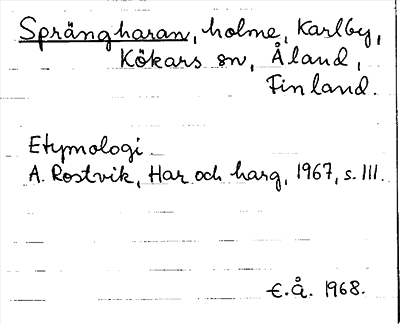 Sprängharan, holme, Karlby,
Kökars sn, Åland,
Finland.
Etymologi
A. Rostvik, Har och harg, 1967, s. 111.
€.Å. 1968.